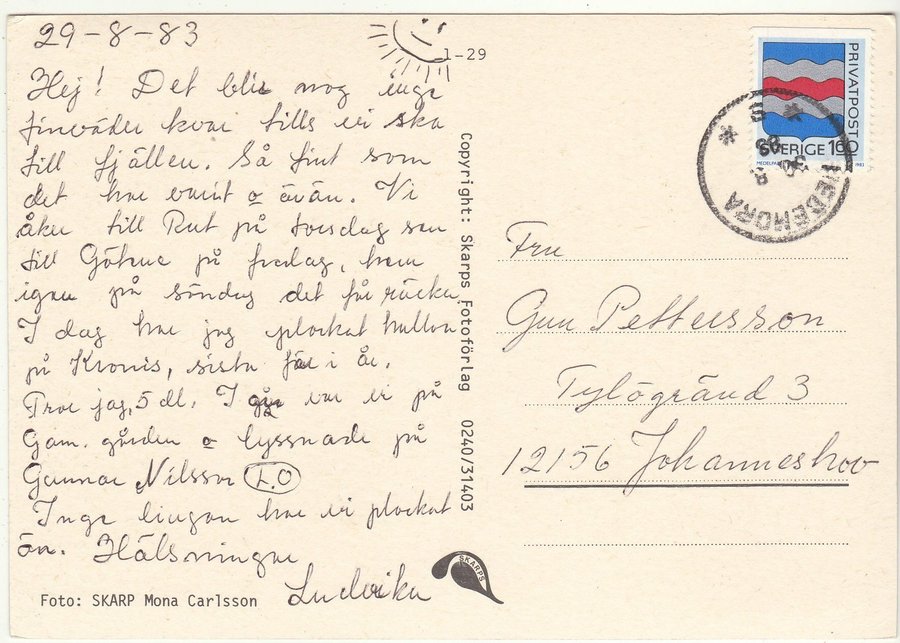 29-8-83
1-29
Hej! Det blir nog inge
finväder kvar tills vi ska
till fjällen. Så fint som
det har varit o även. Vi
åker till Rut på torsdag sen
till Göhne på fredag, hem
igen på söndag det får räcka.
I dag har jag plockat hallon
på Kronis, sista för i år.
Tror jag, 5 dl. I går var vi på
Gam. gården o lyssnade på
Gunnar Nilsson F.O
Inge lingon har vi plockat
än. Hälsningar
Ludvika
Foto: SKARP Mona Carlsson
Copyright: Skarps Fotoförlag 0240/31403
SKARPS
PRIVATPOST
SVERIGE 160
MEDELPAD
1983
HEDEMORA
Fru
Gun Pettersson
Tylögränd 3
12156 Johanneshov